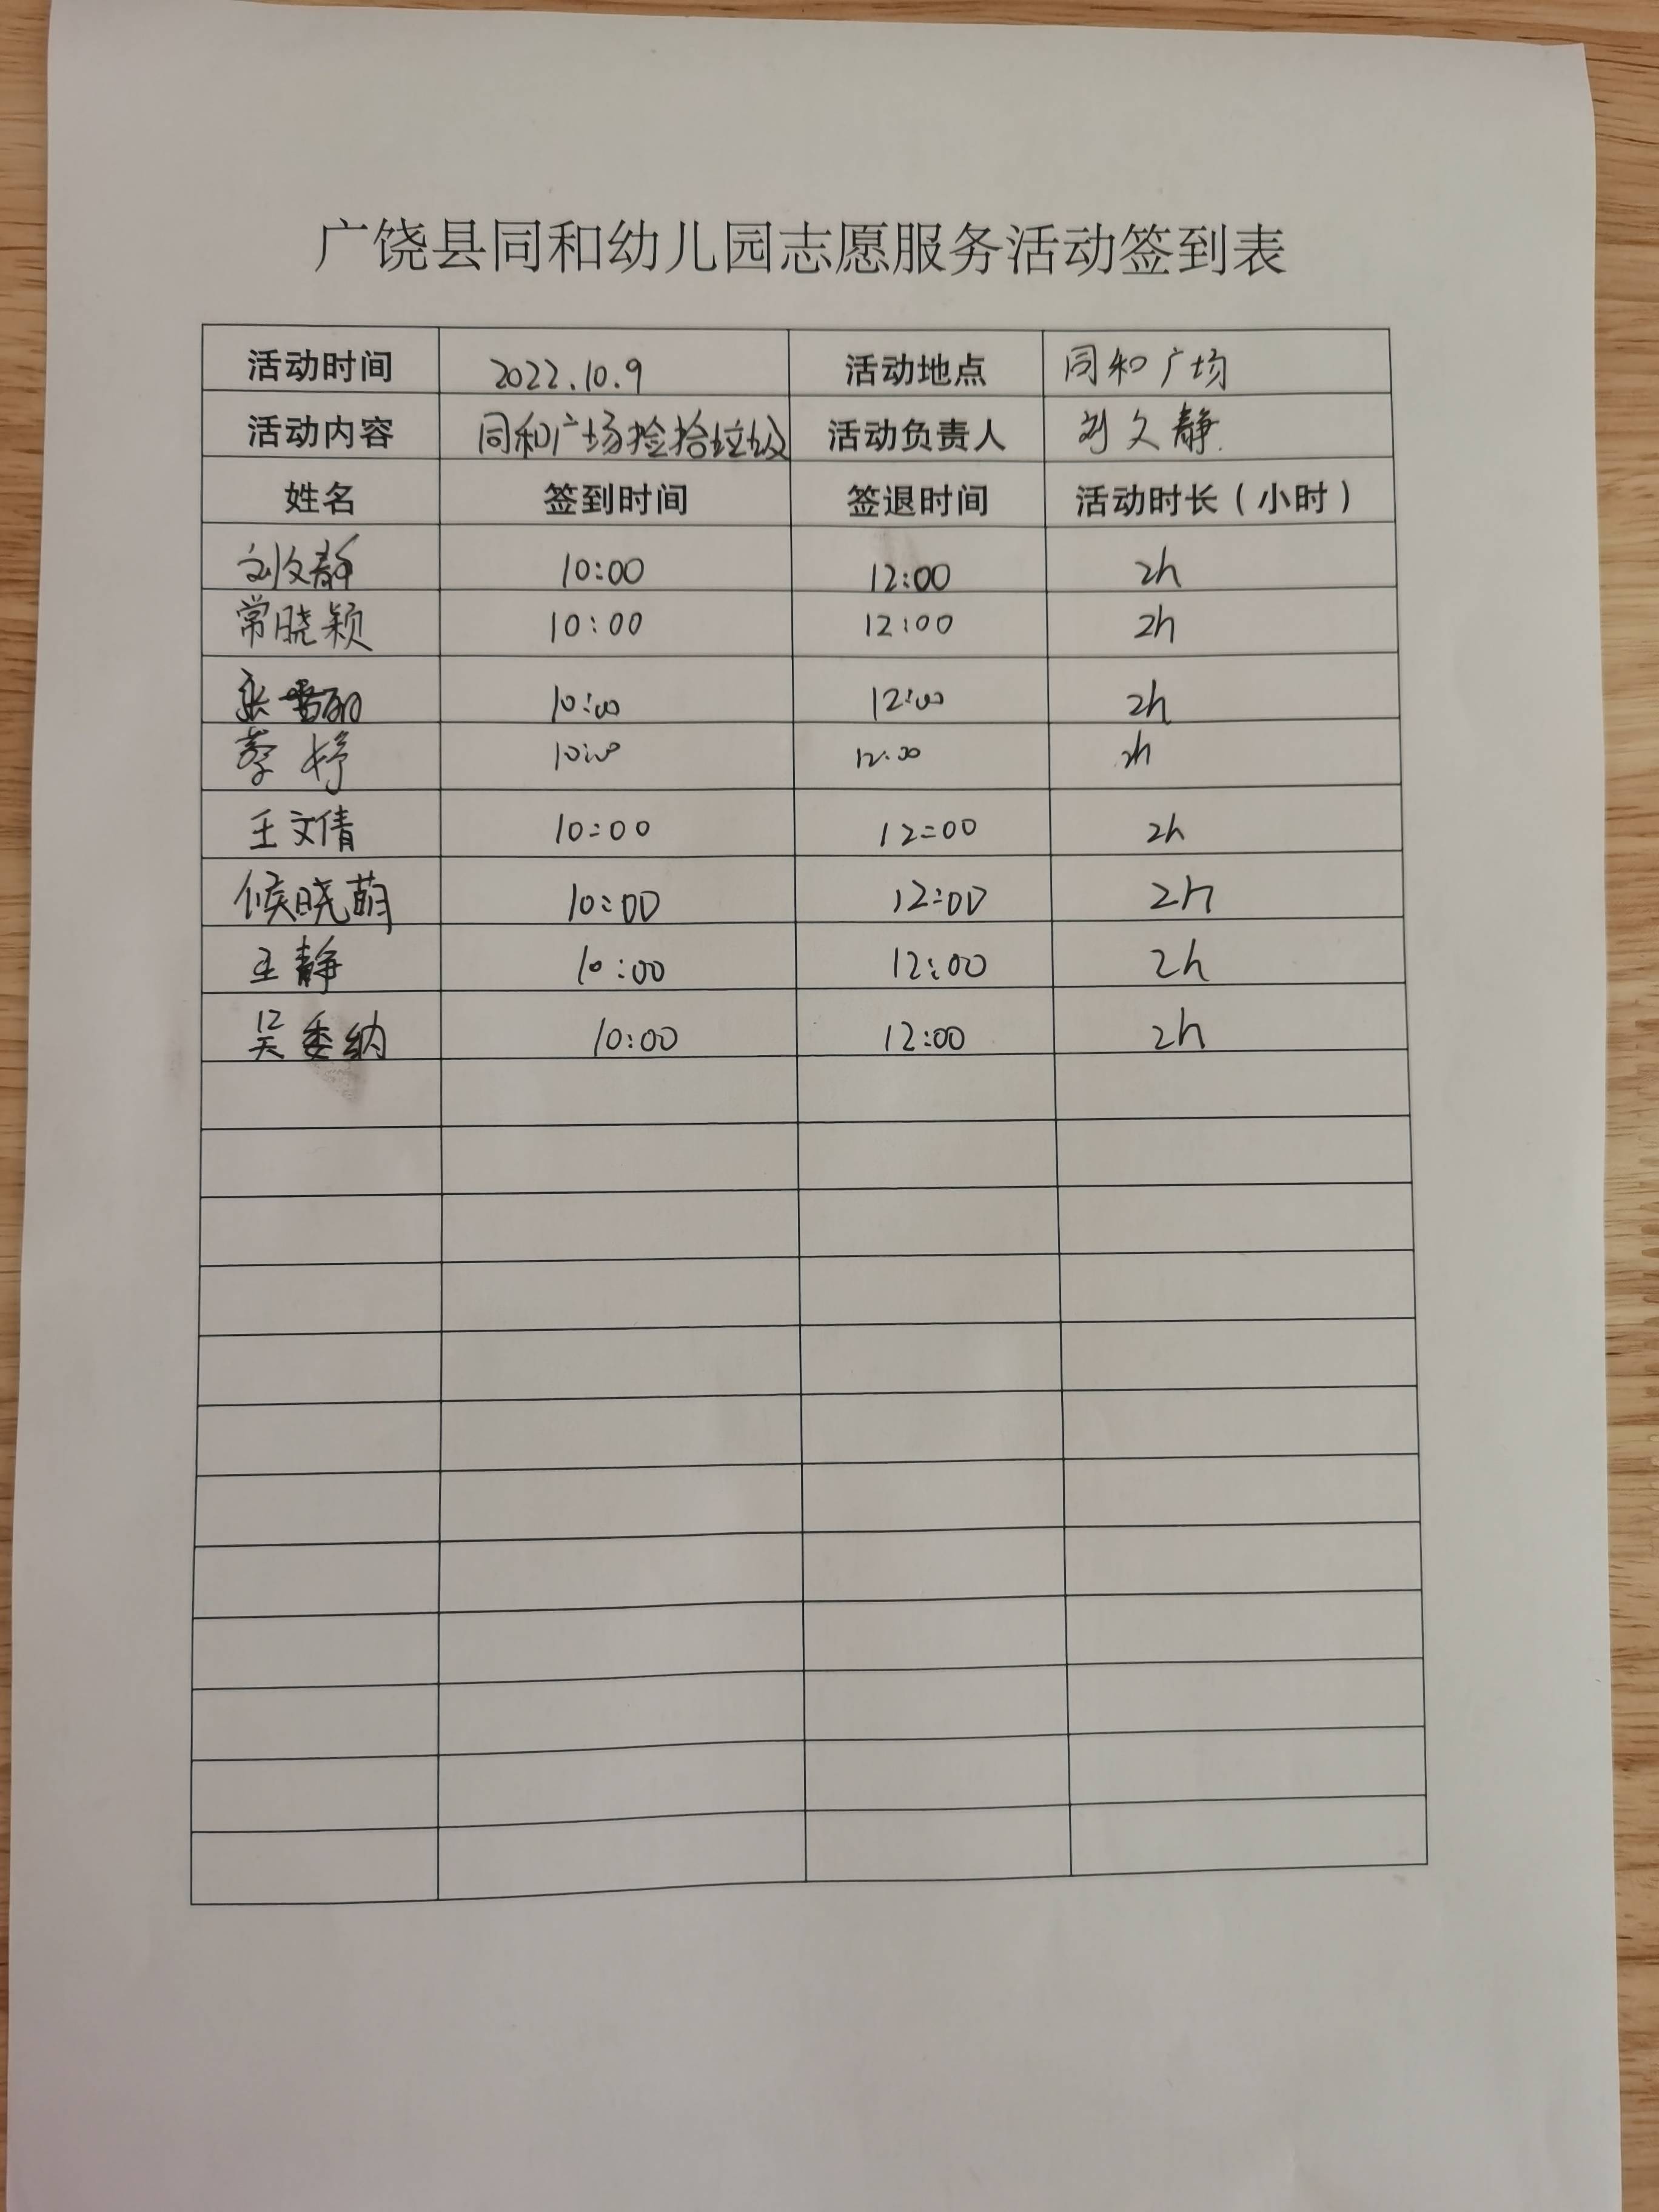 广饶县同和幼儿园志愿服务活动签到表
活动时间 2022.10.9 活动地点 同和广场
活动内容 同和广场捡拾垃圾 活动负责人 刘文静
姓名 签到时间 签退时间 活动时长（小时）
刘文静 10:00 12:00 2h
常晓颖 10:00 12:00 2h
张 10:00 12:00 2h
蔡婷 10:00 12:00 2h
王文倩 10:00 12:00 2h
候晓萌 10:00 12:00 2h
王静 10:00 12:00 2h
吴委纳 10:00 12:00 2h